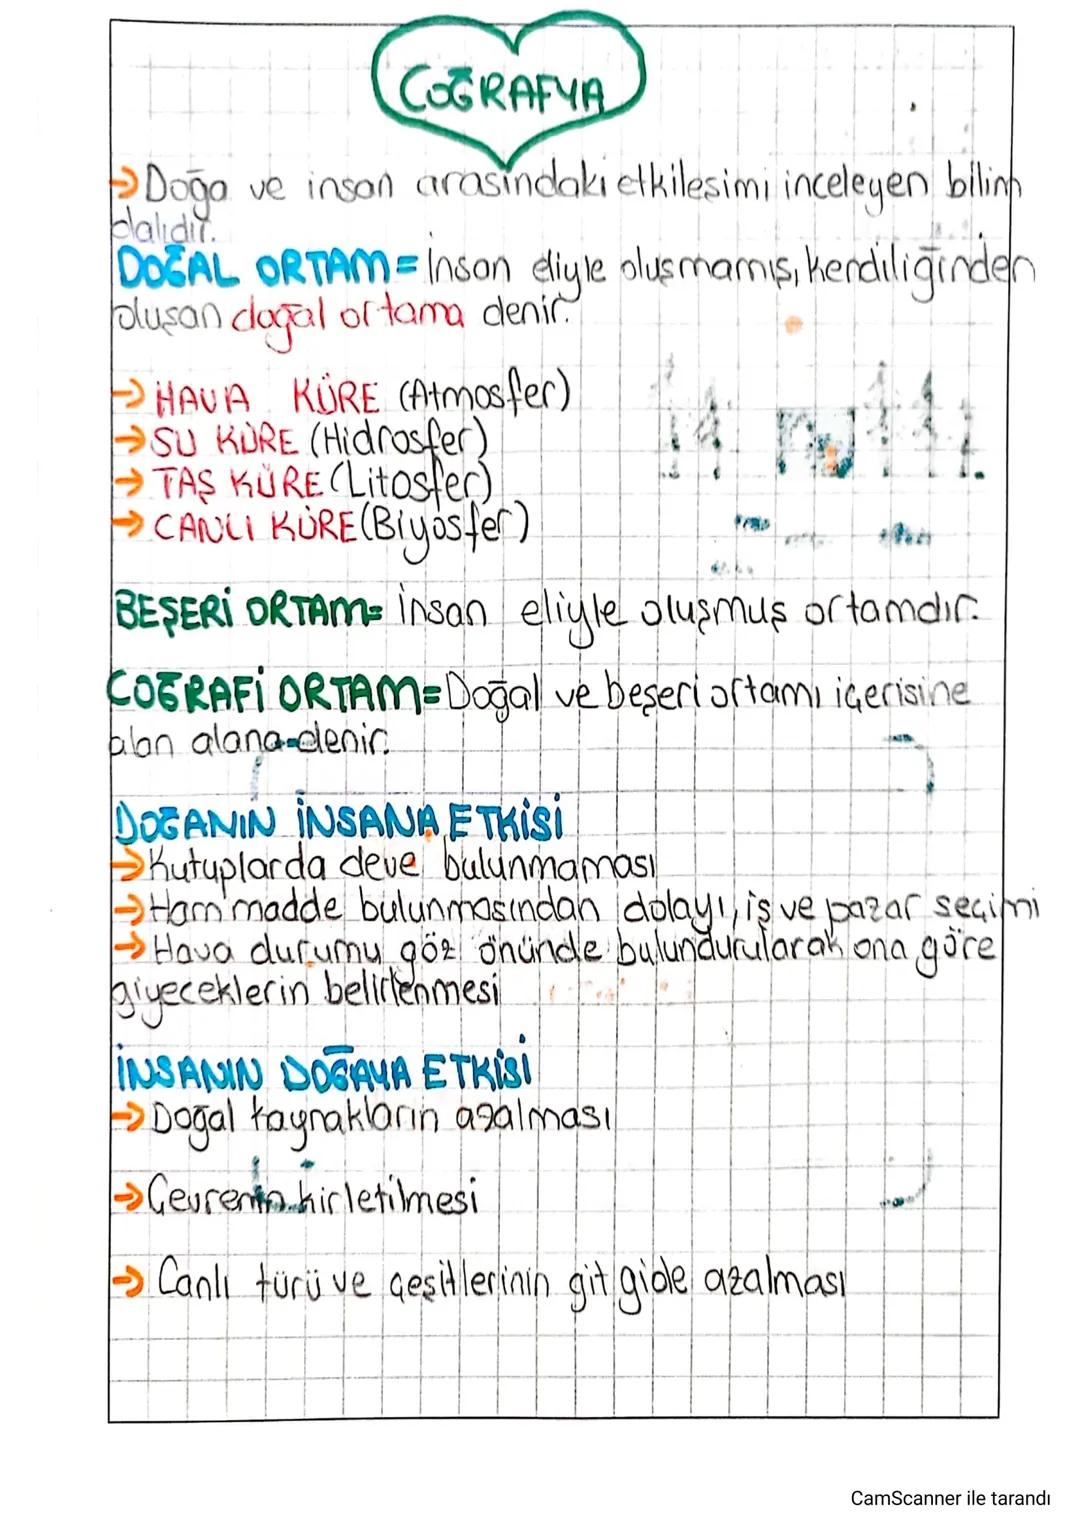 COĞRAFYA
→ Doğa ve insan arasındaki etkileşimi inceleyen bilim
dalıdır.
DOĞAL ORTAM= İnsan eliyle oluşmamış, kendiliğinden
oluşan doğal ortama denir.
→ HAVA KÜRE (Atmosfer)
→ SU KÜRE (Hidrosfer)
→ TAŞ KÜRE (Litosfer)
→ CANLI KÜRE (Biyosfer)
BEŞERİ ORTAM= İnsan eliyle oluşmuş ortamdır.
COĞRAFİ ORTAM= Doğal ve beşeri ortamı içerisine
alan alana denir.
DOĞANIN İNSANA ETKİSİ
→ Kutuplarda deve bulunmaması
→ Ham madde bulunmasından dolayı, iş ve pazar seçimi
→ Hava durumu göz önünde bulundurularak ona göre
giyeceklerin belirlenmesi
İNSANIN DOĞAYA ETKİSİ
→ Doğal kaynakların azalması
→ Çevrenin kirletilmesi
→ Canlı türü ve çeşitlerinin git gide azalması
CamScanner ile tarandı